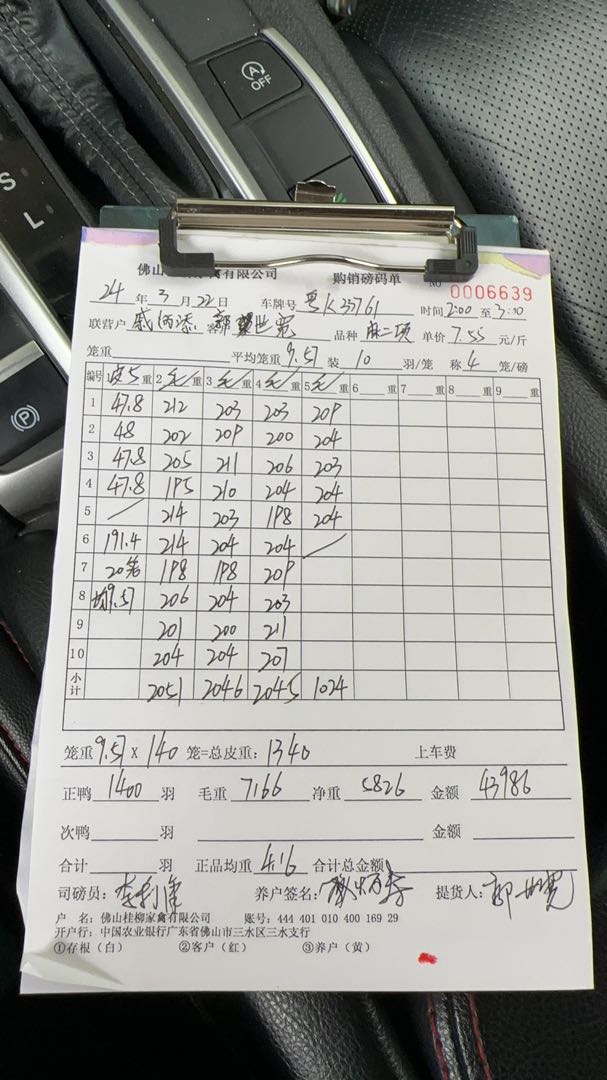 OFF
S
L
P
佛山 有限公司 购销磅码单 NO 0006639
24 年 3 月 22 日 车牌号 粤K33761 时间 2:00 至 3:00
联营户 客 郭 世宽 品种 麻二项 单价 7.55 元/斤
笼重 平均笼重 9.57 装 10 羽/笼 称 4 笼/磅
编号 1 皮 重 2 毛 重 3 毛 重 4 毛 重 5 毛 重 6 重 7 重 8 重 9 重
1 47.8 212 203 203 209
2 48 202 209 200 204
3 47.8 205 211 206 203
4 47.8 195 210 204 204
5 / 214 203 198 204
6 191.4 214 204 204 /
7 20笼 198 198 209
8 均9.57 206 204 203
9 201 200 211
10 204 204 207
小计 2051 2046 2045 1024
笼重 9.57 x 140 笼=总皮重: 1340 上车费
正鸭 1400 羽 毛重 7166 净重 5826 金额 43986
次鸭 羽 金额
合计 羽 正品均重 4.16 合计总金额
司磅员: 养户签名: 提货人: 郭世宽
户 名: 佛山桂柳家禽有限公司 账号: 444 401 010 400 169 29
开户行: 中国农业银行广东省佛山市三水区三水支行
①存根（白） ②客户（红） ③养户（黄）